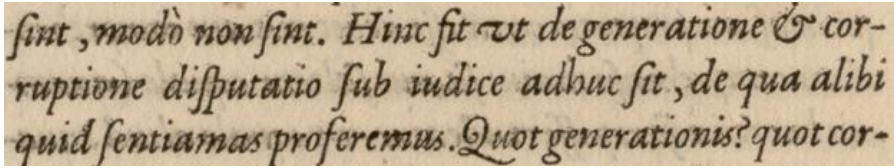 ſint, modò non ſint. Hinc fit vt de generatione & cor-
ruptione diſputatio ſub iudice adhuc ſit, de qua alibi
quid ſentiamas proferemus. Quot generationis? quot cor-